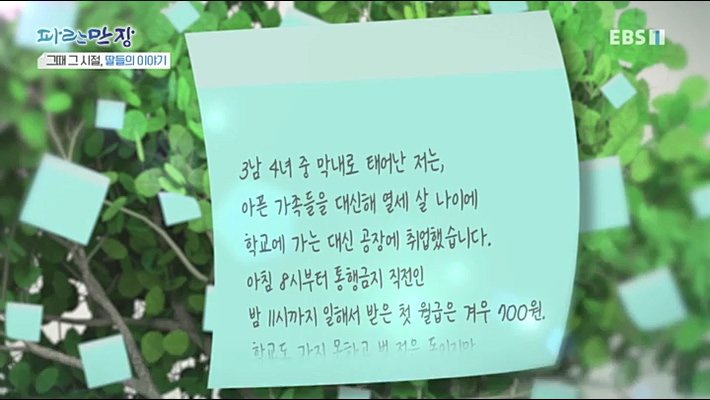 파란만장
EBS1
그때 그 시절, 딸들의 이야기
3남 4녀 중 막내로 태어난 저는,
아픈 가족들을 대신해 열세 살 나이에
학교에 가는 대신 공장에 취업했습니다.
아침 8시부터 통행금지 직전인
밤 11시까지 일해서 받은 첫 월급은 겨우 700원.
학교도 가지 못하고 번 적은 돈이지만